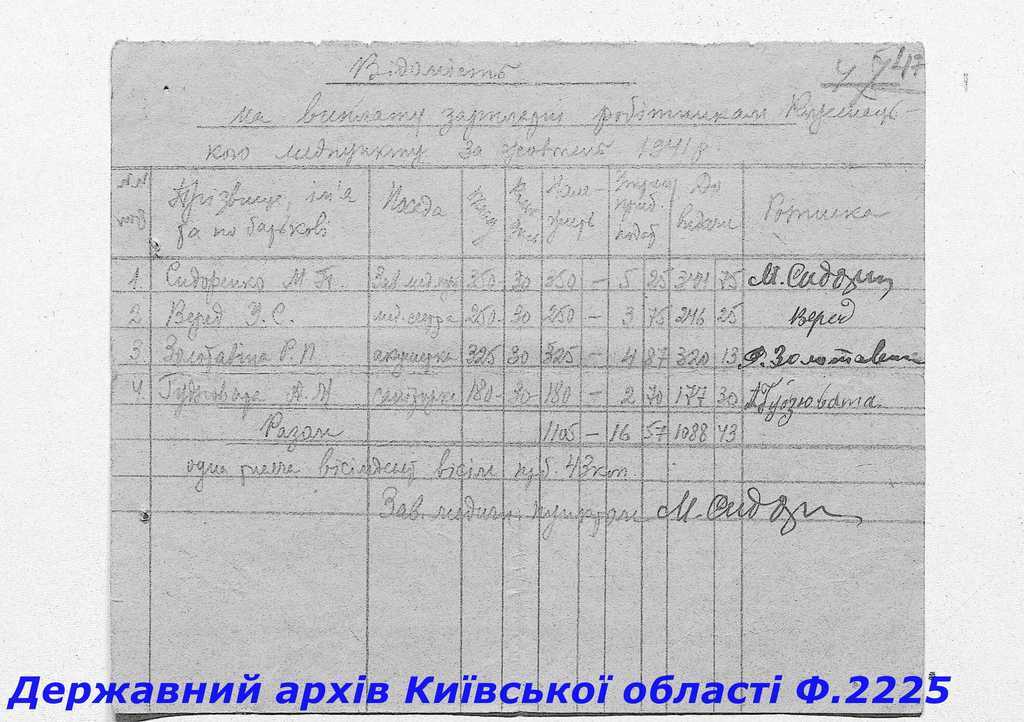 Відомість
на виплату зарплати робітникам
кого медпункту за жовтень 1941 р.
Прізвище, ім'я та по батькові Посада До видачи Розписка
1. Сидоренко М. 350 30 350 – 5 25 344 75 М. Сидор
2 Веред С. мед. сестра 250 30 250 – 3 75 246 25 Веред
3. Золотавіна Р. П акушерка 325 30 325 – 4 87 320 13 Золотавіна
4. Гудзовата А. санітарка 180 30 180 – 2 70 177 30 Гудзювата
Разом 1105 – 16 57 1088 43
одна тисяча вісімдесят вісім крб. 43 коп.
Зав. медичн. пунктом М. Сидор
Державний архів Київської області Ф.2225